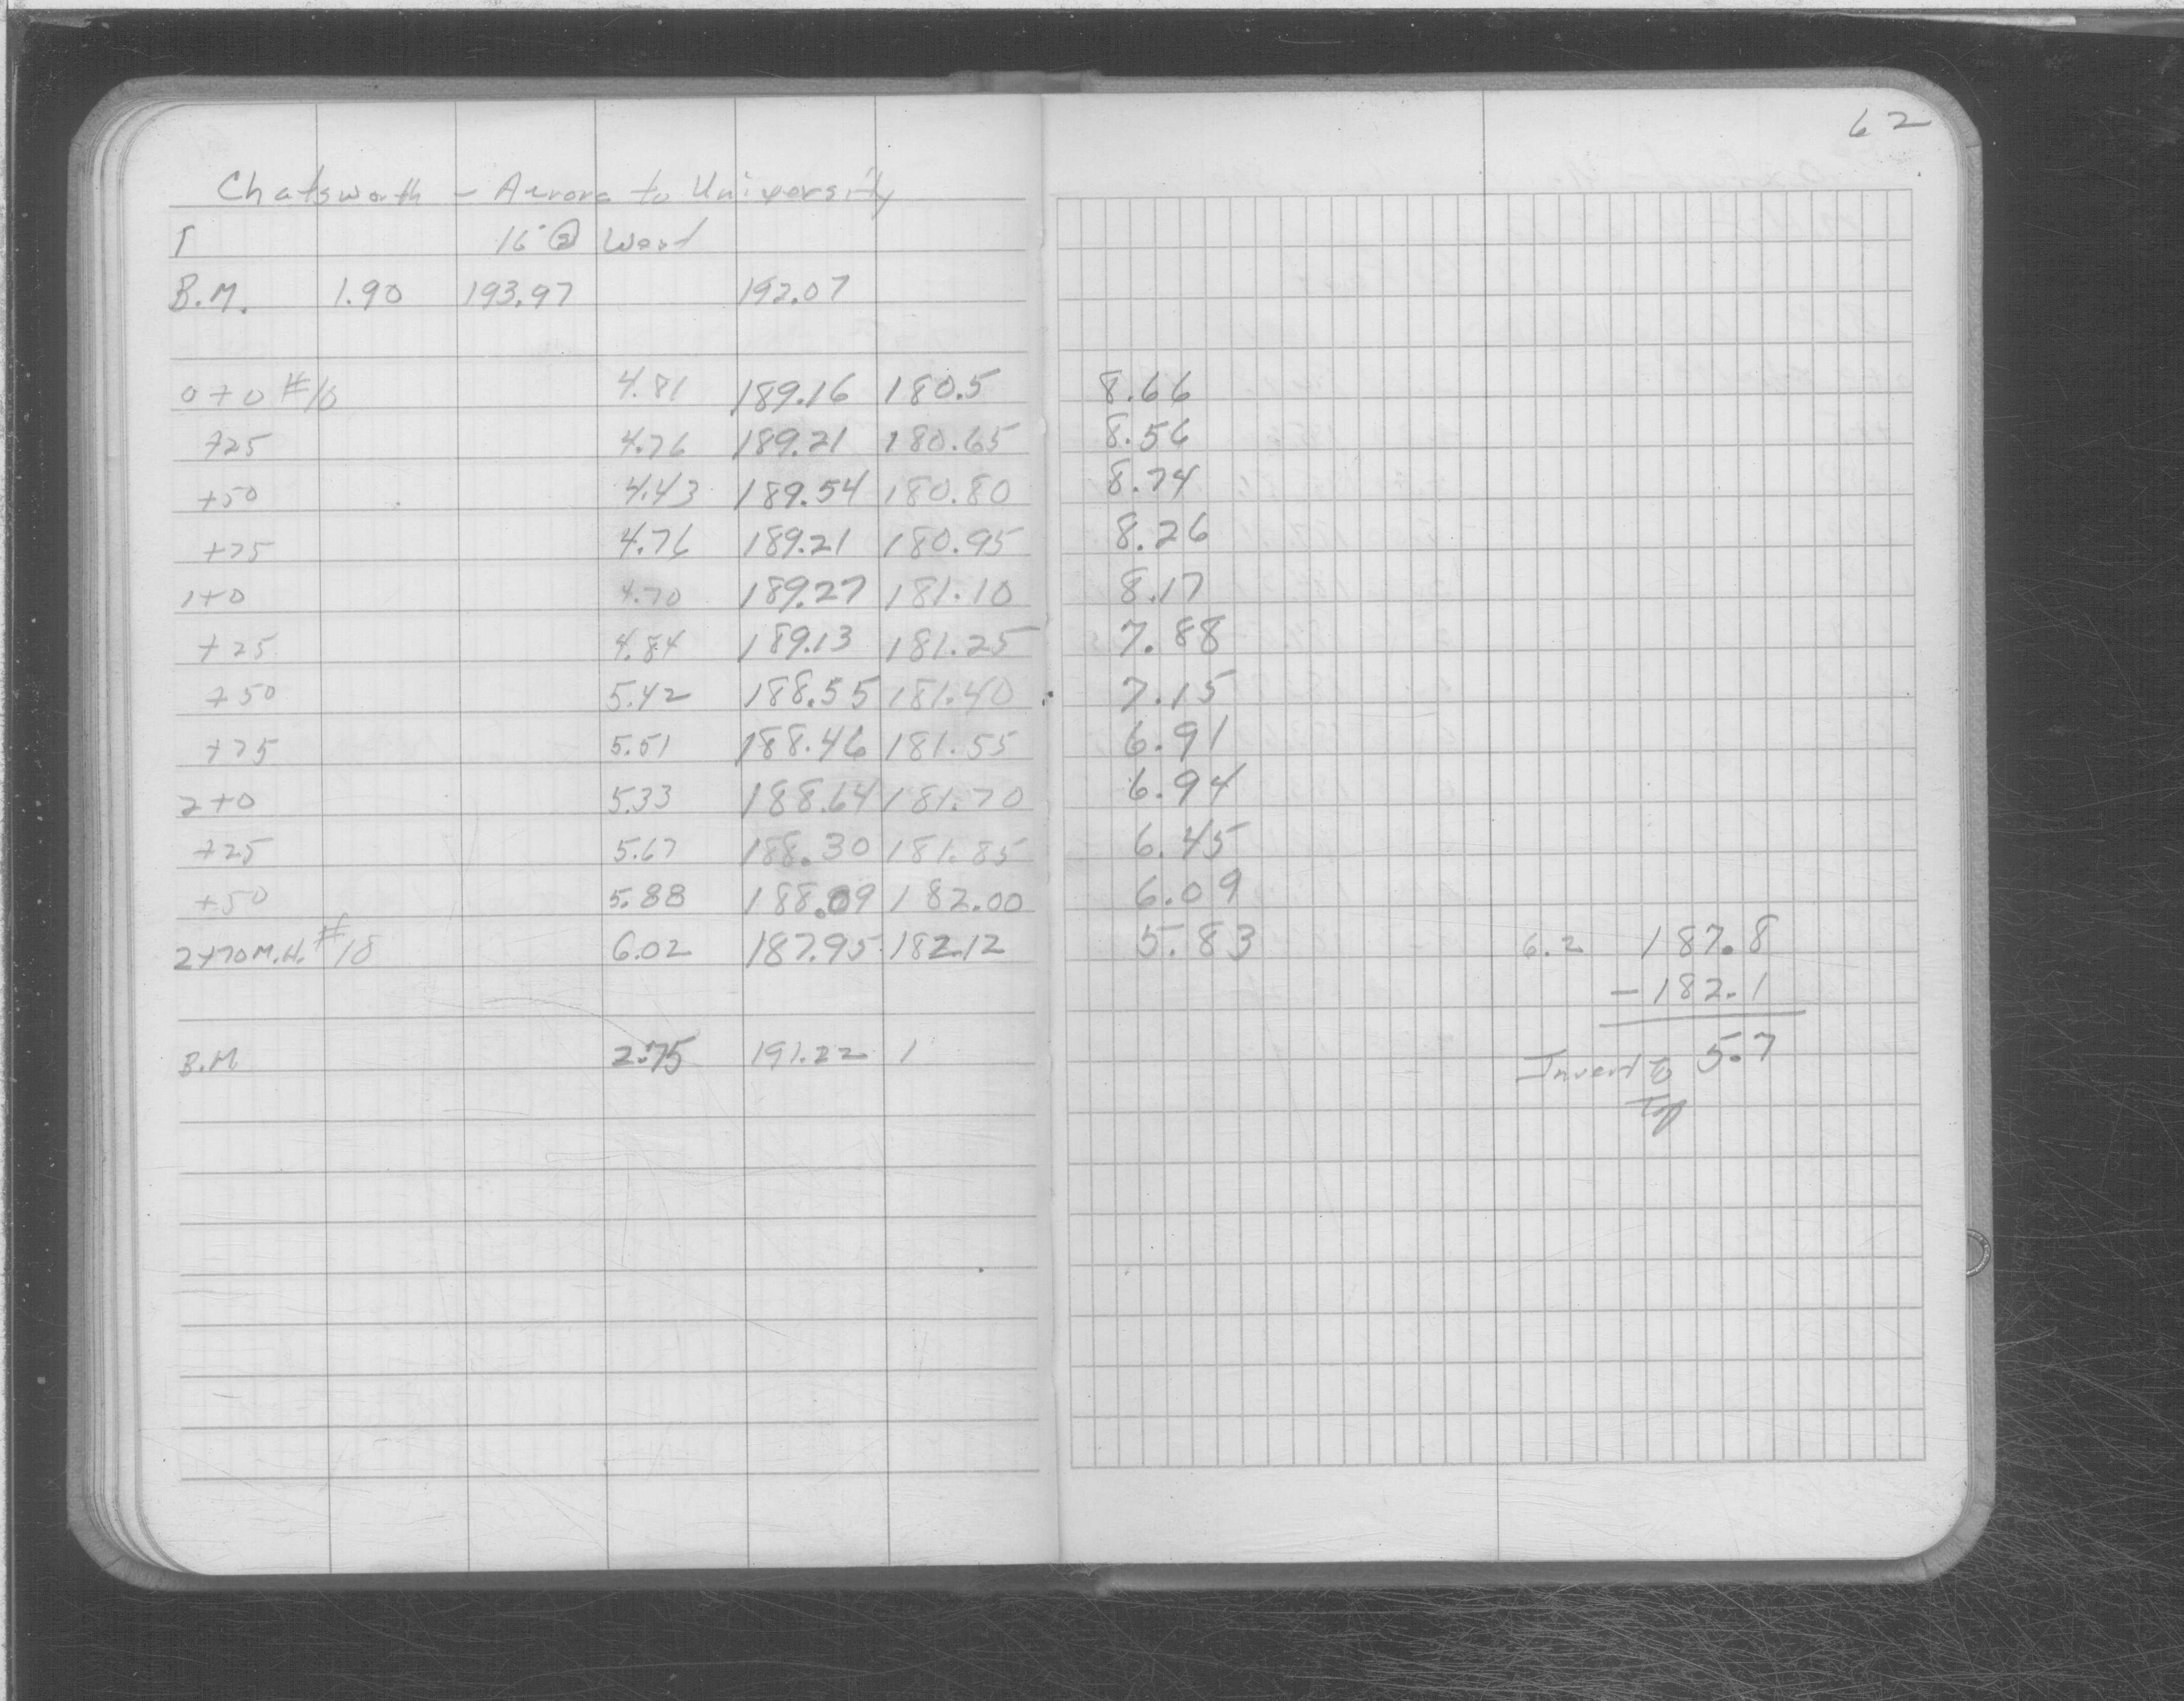 62
Chatsworth - Aurora to University
T 16' West
B.M. 1.90 193.97 192.07
0+0 #10 4.81 189.16 180.5 8.66
+25 4.76 189.21 180.65 8.56
+50 4.43 189.54 180.80 8.74
+75 4.76 189.21 180.95 8.26
1+0 4.70 189.27 181.10 8.17
+25 4.84 189.13 181.25 7.88
+50 5.42 188.55 181.40 7.15
+75 5.51 188.46 181.55 6.91
2+0 5.33 188.64 181.70 6.94
+25 5.67 188.30 181.85 6.45
+50 5.88 188.09 182.00 6.09
2+70 M.H. #18 6.02 187.95 182.12 5.83 6.2 187.8
-182.1
B.M 2.75 191.22 1 Invert to 5.7
Top